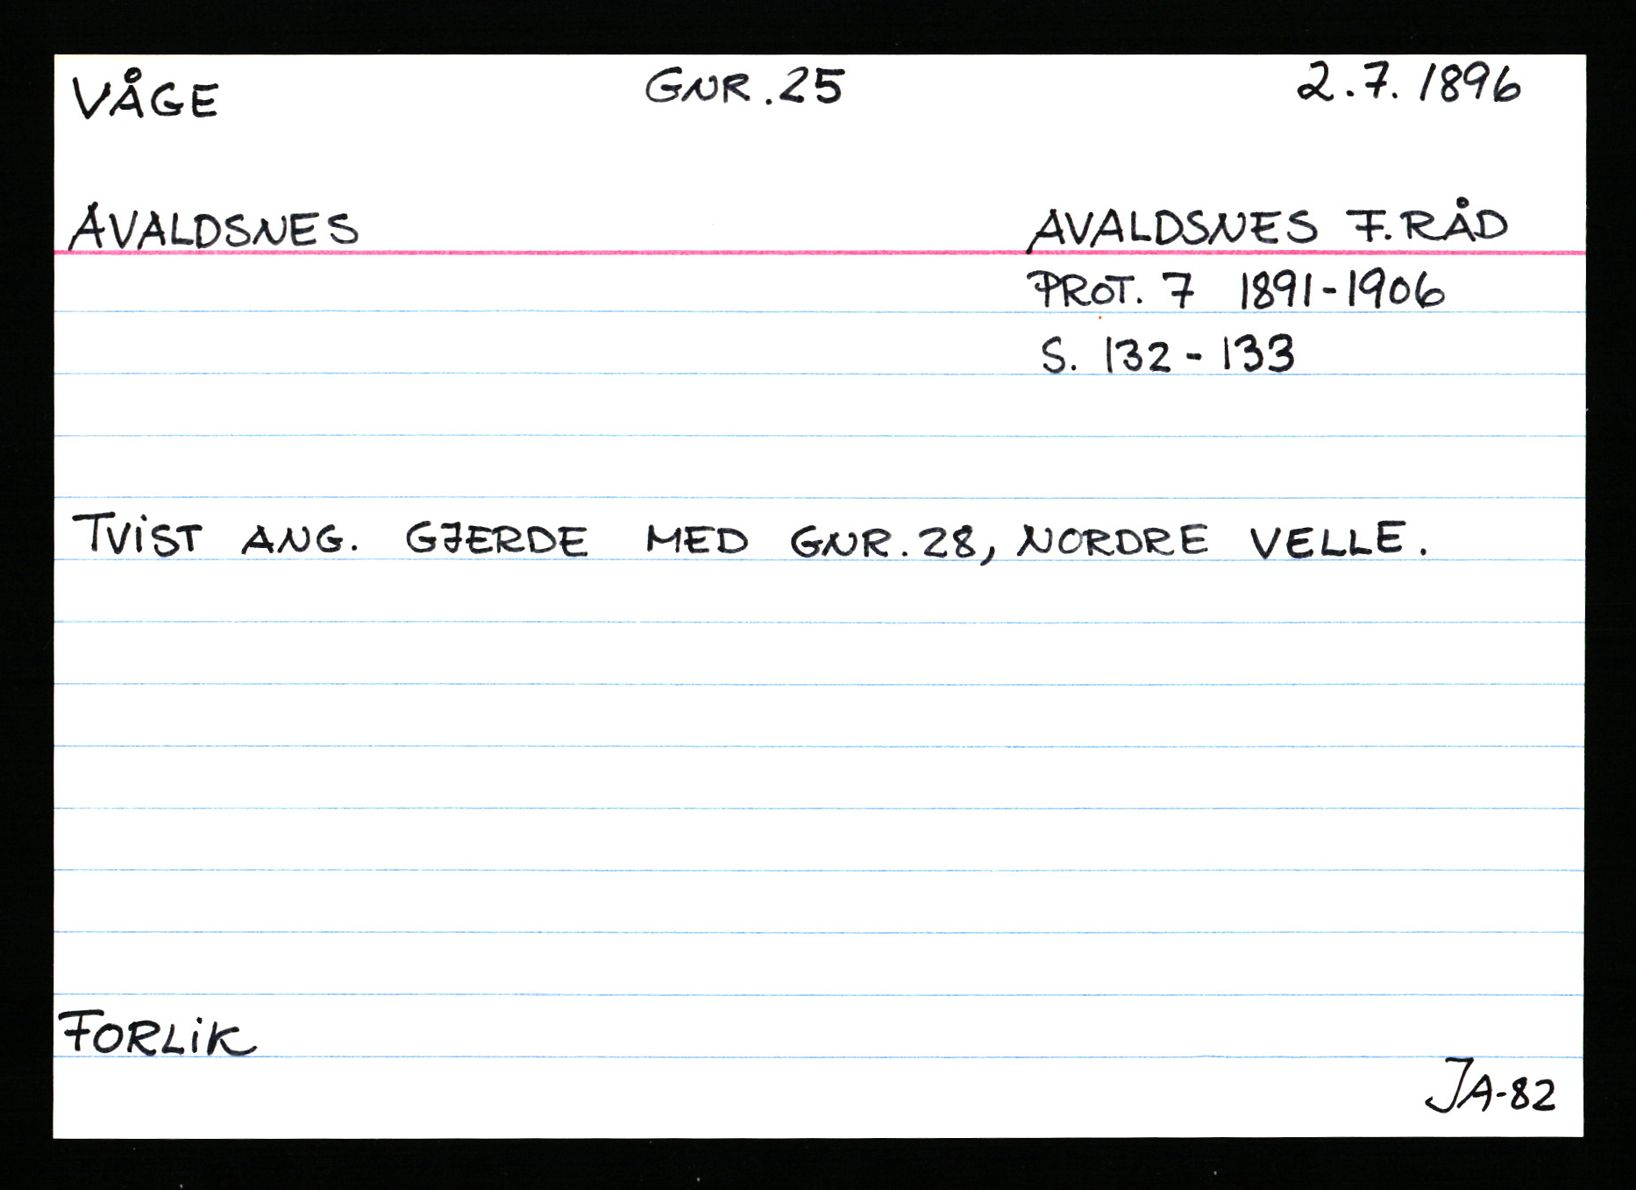 VÅGE GNR. 25 2.7. 1896
AVALDSNES AVALDSNES F.RÅD
PROT. 7 1891-1906
S. 132 - 133
TViST ANG. GJERDE MED GNR. 28, NORDRE VELLE.
FORLiK
JA-82